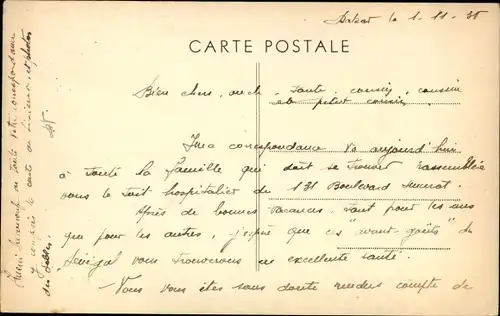 Dakar le 1-11-35
CARTE POSTALE
Bien chers oncle, tante, cousins, cousine
et petit cousin,
Ma correspondance va aujourd'hui
à toute la famille qui doit se trouver rassemblée
sous le toit hospitalier du 131 Boulevard Murat.
Après de bonnes vacances, tant pour les uns
que pour les autres, j'espère que ces "avant-goûts" du
Sénégal vous trouverons en excellente santé.
- Vous vous êtes sans doute rendus compte de
toute votre correspondance
y compris la carte
des Sables.